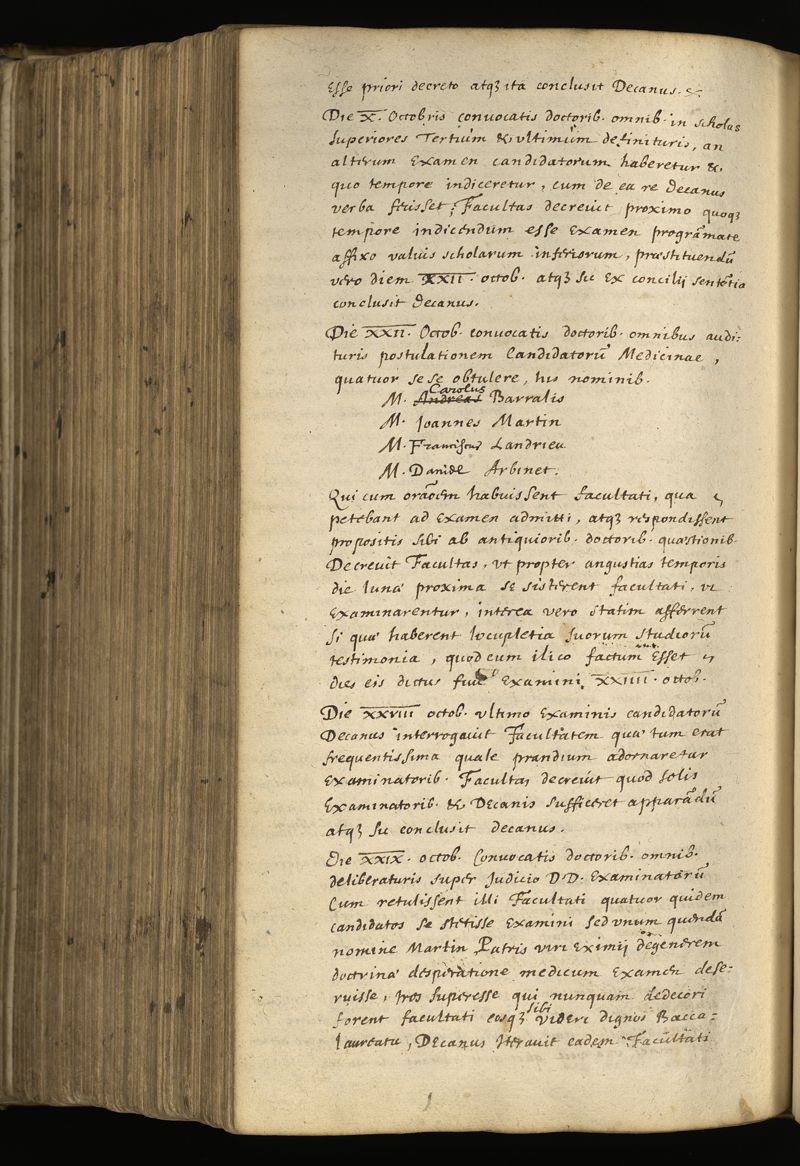 esse priori decreto atqȝ ita conclusit Decanus.
Die X. Octobris convocatis doctorib. omnib. in scholas
superiores tertium & ultimùm definituris, an
alterum examen candidatorum haberetur &
quo tempore indiceretur, cum de ea re Decanus
verba fecisset; Facultas decrevit proximo quoqȝ
tempore indicendum esse examen programate
affixo valuis scholarum inferiorum, præstituendũ
vero diem XXII. octob. atqȝ sic ex concilij sententia
conclusit Decanus.
Die XXII. Octob. convocatis doctorib. omnibus audi:
turis postulationem Candidatorũ Medicinae,
quatuor sese obtulere, his nominib.
Carolus
M. Andreas Barralis
M. Joannes Martin
M. Franciscus Landrieu
M. Daniel Arbinet.
Qui cum oraõem habuissent facultati, qua
petebant ad examen admitti, atqȝ respondissent
propositis sibi ab antiquiorib. doctorib. quæstionib.
Decrevit Facultas, vt propter angustias temporis
die lunæ proxima se sisterent facultati, vt
examinarentur, interea vero statim afferrent
si quæ haberent locupletia suorum studiorũ
testimonia, quod cum ilico factum esset
dies eis dictus examini, XXIIII. octob.
Die XXVIII octob. vltimo examinis candidatorũ
Decanus interrogavit Facultatem quæ tum erat
frequentissima quale prandium adornaretur
examinatorib. Facultas decrevit quod solis
examinatorib. & Decanis sufficeret apparãdũ
atqȝ sic conclusit decanus.
Die XXIX. octob. Convocatis doctorib. omnib.
deliberaturis super judicio D D. Examinatorũ
Cum retulissent illi Facultati quatuor quidem
candidatos se stetisse examini sed vnum quendã
nomine Martin Patris viri eximij degenerem
doctrinæ desperatione medicum examen dese:
ruisse, tres superesse qui nunquam dedecori
sibi
forent facultati eosqȝ videri dignos Bacca:
laureatu, Decanus iteravit eadem Facultati